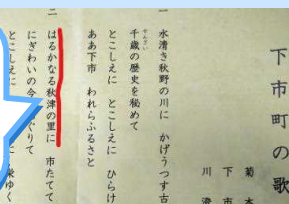 下市町の歌
菊本
下市
川澄
一 水清き秋野の川に かげうつす古
千歳の歴史を秘めて
せんざい
とこしえに とこしえに ひらけ
ああ下市 われらふるさと
二 はるかなる秋津の里に 市たてて
にぎわいの今 ぐりて
とこしえに 栄ゆく